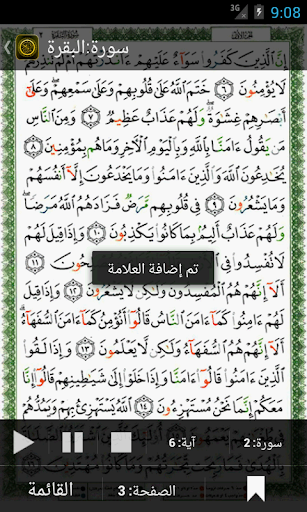 3G 9:08
سورة:البقرة
إِنَّ ٱلَّذِينَ كَفَرُوا۟ سَوَآءٌ عَلَيْهِمْ ءَأَنذَرْتَهُمْ أَمْ لَمْ تُنذِرْهُمْ
لَا يُؤْمِنُونَ ٦ خَتَمَ ٱللَّهُ عَلَىٰ قُلُوبِهِمْ وَعَلَىٰ سَمْعِهِمْ وَعَلَىٰٓ
أَبْصَٰرِهِمْ غِشَٰوَةٌ وَلَهُمْ عَذَابٌ عَظِيمٌ ٧ وَمِنَ ٱلنَّاسِ
مَن يَقُولُ ءَامَنَّا بِٱللَّهِ وَبِٱلْيَوْمِ ٱلْءَاخِرِ وَمَا هُم بِمُؤْمِنِينَ ٨
يُخَٰدِعُونَ ٱللَّهَ وَٱلَّذِينَ ءَامَنُوا۟ وَمَا يَخْدَعُونَ إِلَّآ أَنفُسَهُمْ
وَمَا يَشْعُرُونَ ٩ فِى قُلُوبِهِم مَّرَضٌ فَزَادَهُمُ ٱللَّهُ مَرَضًا
وَلَهُمْ عَذَابٌ أَلِيمٌۢ بِمَا كَانُوا۟ يَكْذِبُونَ ١٠ وَإِذَا قِيلَ لَهُمْ
لَا تُفْسِدُوا۟ ١١
تم إضافة العلامة
أَلَآ إِنَّهُمْ هُمُ ٱلْمُفْسِدُونَ وَلَٰكِن لَّا يَشْعُرُونَ ١٢ وَإِذَا قِيلَ
لَهُمْ ءَامِنُوا۟ كَمَآ ءَامَنَ ٱلنَّاسُ قَالُوٓا۟ أَنُؤْمِنُ كَمَآ ءَامَنَ ٱلسُّفَهَآءُ
أَلَآ إِنَّهُمْ هُمُ ٱلسُّفَهَآءُ وَلَٰكِن لَّا يَعْلَمُونَ ١٣ وَإِذَا لَقُوا۟
ٱلَّذِينَ ءَامَنُوا۟ قَالُوٓا۟ ءَامَنَّا وَإِذَا خَلَوْا۟ إِلَىٰ شَيَٰطِينِهِمْ قَالُوٓا۟ إِنَّا
مَعَكُمْ إِنَّمَا نَحْنُ مُسْتَهْزِءُونَ ١٤ ٱللَّهُ يَسْتَهْزِئُ بِهِمْ وَيَمُدُّهُمْ
سورة: 2 آية: 6
الصفحة: 3 القائمة